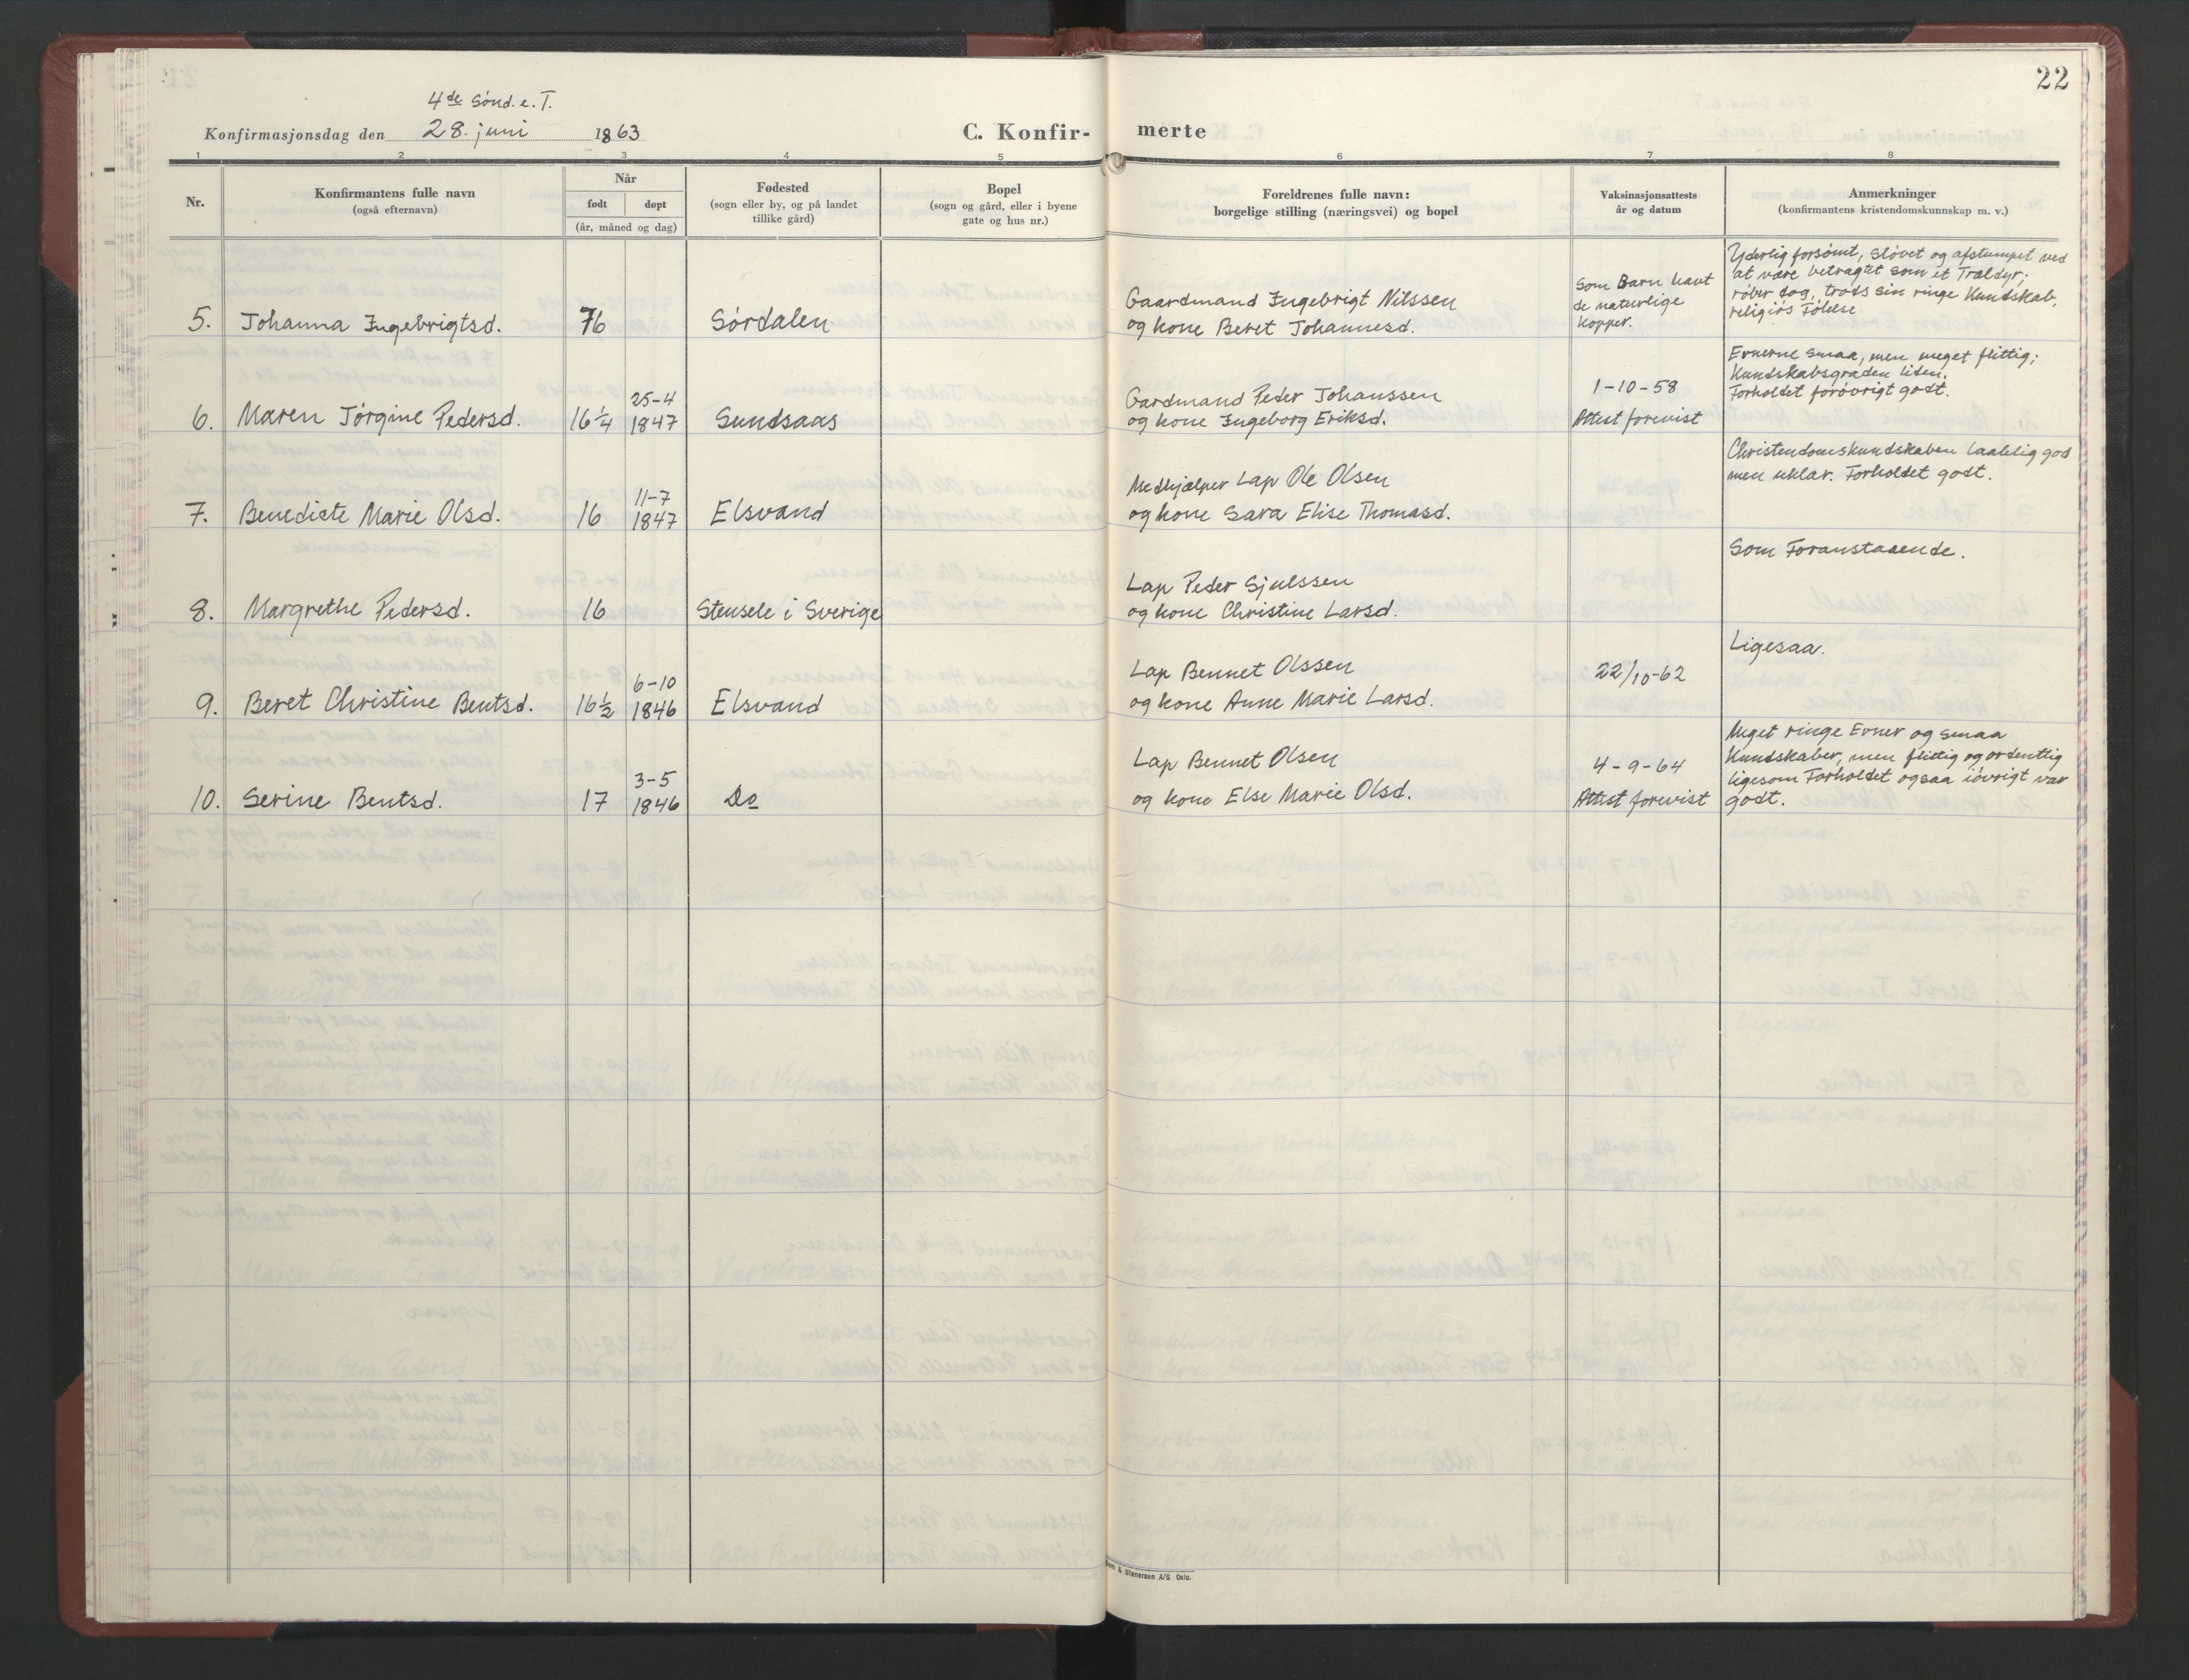 22
4de Sønd. e. T.
Konfirmasjonsdag den 28. juni 1863
C. Konfir- merte
1 2 3 4 5 6 7 8
Nr.
Konfirmantens fulle navn
(også efternavn)
Når
født døpt
(år, måned og dag)
Fødested
(sogn eller by, og på landet
tillike gård)
Bopel
(sogn og gård, eller i byene
gate og hus nr.)
Foreldrenes fulle navn:
borgelige stilling (næringsvei) og bopel
Vaksinasjonsattests
år og datum
Anmerkninger
(konfirmantens kristendomskunnskap m. v.)
5. Johanna Ingebrigtsd. 76 Sørdalen
Gaardmand Ingebrigt Nilssen
og kone Beret Johannesd.
Som Barn havt
de naturlige
kopper.
Yderlig forsømt, sløvet og afstumpet ved
at være betragtet som et Trældyr;
røber dog, trods sin ringe Kundskab,
religiøs Følelse
6. Maren Jørgine Pedersd. 16 1/4 25-4
1847 Sundsaas
Gardmand Peder Johanssen
og kone Ingeborg Eriksd.
1-10-58
Attest forevist
Evnerne smaa, men meget flittig;
Kundskabsgraden liden.
Forholdet forøvrigt godt.
7. Benedicte Marie Olsd. 16 11-7
1847 Elsvand
Medhjælper Lap Ole Olsen
og kone Sara Elise Thomasd.
Christendomskundskaben taalelig god
men uklar. Forholdet godt.
8. Margrethe Pedersd. 16 Stensele i Sverige
Lap Peder Sjulssen
og kone Christine Larsd.
Som Foranstaaende.
9. Beret Christine Bentsd. 16 1/2 6-10
1846 Elsvand
Lap Bennet Olssen
og kone Anne Marie Larsd.
22/10-62
Ligesaa.
10. Serine Bentsd. 17 3-5
1846 Do
Lap Bennet Olsen
og kone Else Marie Olsd.
4-9-64
Attest forevist
Meget ringe Evner og smaa
Kundskaber, men flittig og ordentlig
ligesom Forholdet ogsaa iøvrigt var
godt.
& Stenersen A/S Oslo.